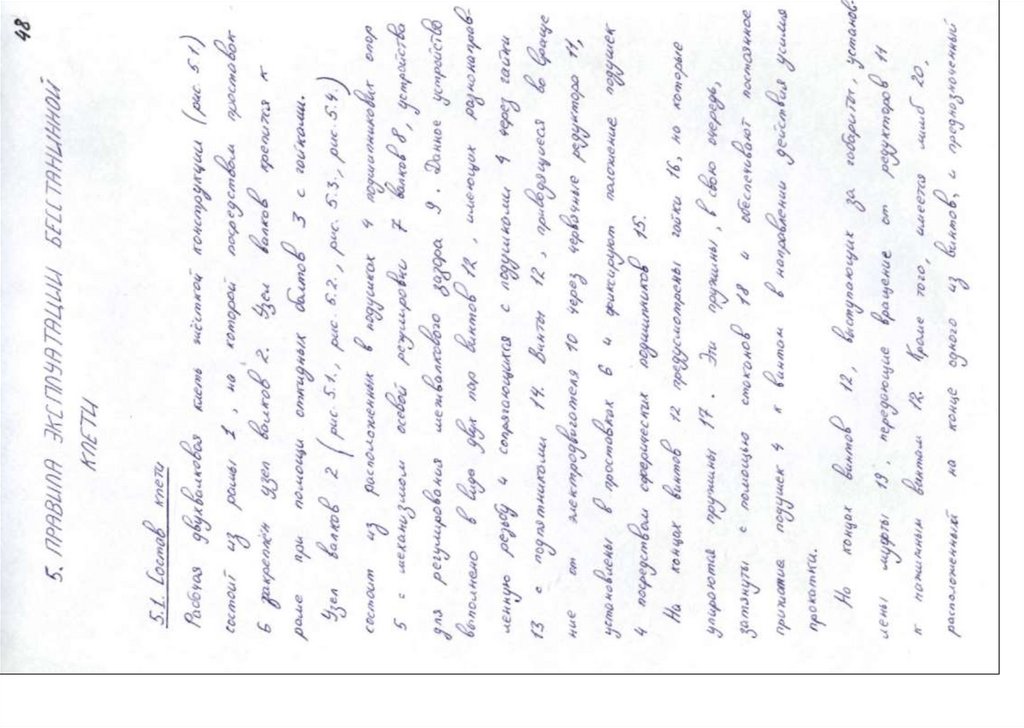 48
5. ПРАВИЛА ЭКСПЛУАТАЦИИ БЕССТАНИННОЙ
КЛЕТИ
5.1. Состав клети
Рабочая двухвалковая клеть жёсткой конструкции (рис 5.1)
состоит из рамы 1, на которой посредством проставок
6 закреплён узел валков 2. Узел валков крепится к
раме при помощи откидных болтов 3 с гайками.
Узел валков 2 (рис 5.1., рис. 5.2., рис. 5.3., рис. 5.4.)
состоит из расположенных в подушках 4 подшипниковых опор
5 с механизмом осевой регулировки 7 валков 8, устройства
для регулирования межвалкового зазора 9. Данное устройство
выполнено в виде двух пар винтов 12, имеющих разнонаправ-
ленную резьбу и сопрягающихся с подушками 4 через гайки
13 с подпятниками 14. Винты 12, приводящиеся во враще
ние от электродвигателя 10 через червячные редуктора 11,
установлены в проставках 6 и фиксируют положение подушек
4 посредством сферических подшипников 15.
На концах винтов 12 предусмотрены гайки 16, на которые
упираются пружины 17. Эти пружины, в свою очередь,
затянуты с помощью стаканов 18 и обеспечивают постоянное
прижатие подушек 4 к винтам в направлении действия усилия
прокатки.
На концах винтов 12, выступающих за габариты, установ-
лены муфты 19, передающие вращение от редукторов 11
к нажимным винтам 12. Кроме того, имеется лимб 20,
расположенный на конце одного из винтов, и предназначенный